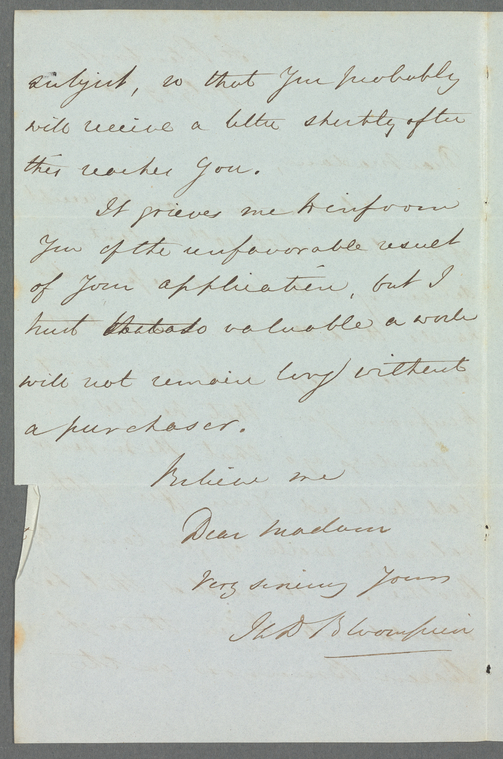 subject, so that you probably
will receive a letter shortly after
this reaches you.
It grieves me to inform
you of the unfavorable result
of your application, but I
trust that so valuable a work
will not remain long without
a purchaser.
Believe me
Dear Madam
Very sincerely Yours